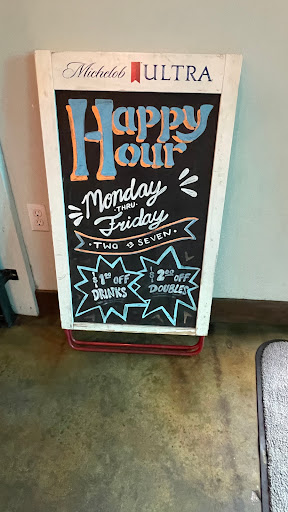 Michelob ULTRA
Happy
Hour
Monday
THRU
Friday
TWO TO SEVEN
$1.00 OFF
DRINKS
$2.00 OFF
DOUBLES